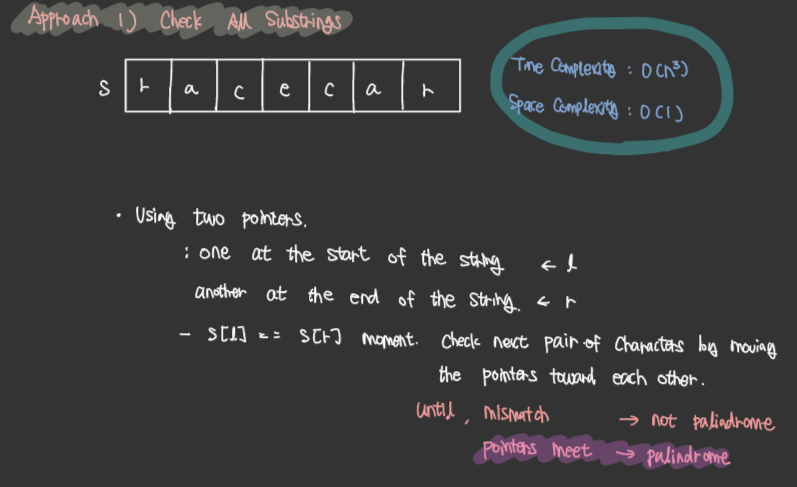 Approach 1) Check All Substrings
S r a c e c a r
Time Complexity : O(n³)
Space Complexity : O(1)
• Using two pointers.
: one at the start of the string ← l
another at the end of the string. ← r
- S[l] == S[r] moment. Check next pair of characters by moving
the pointers toward each other.
until, mismatch → not palindrome
pointers meet → palindrome